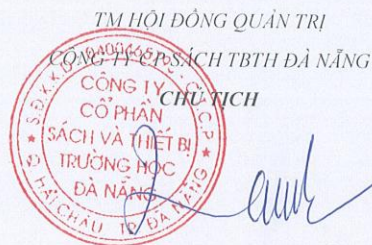 TM HỘI ĐỒNG QUẢN TRỊ
CÔNG TY CP SÁCH TBTH ĐÀ NẴNG
CHỦ TỊCH
CÔNG TY
CỔ PHẦN
SÁCH VÀ THIẾT BỊ
TRƯỜNG HỌC
ĐÀ NẴNG
Q. HẢI CHÂU TP. ĐÀ NẴNG